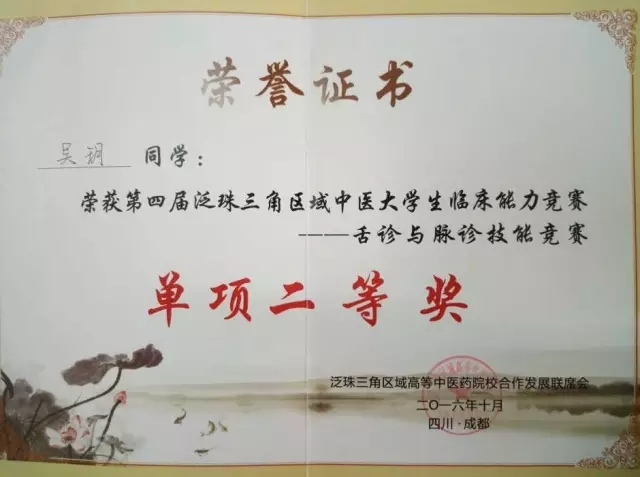 荣誉证书
吴玥 同学：
荣获第四届泛珠三角区域中医大学生临床能力竞赛
——舌诊与脉诊技能竞赛
单项二等奖
泛珠三角区域高等中医药院校合作发展联席会
二〇一六年十月
四川·成都